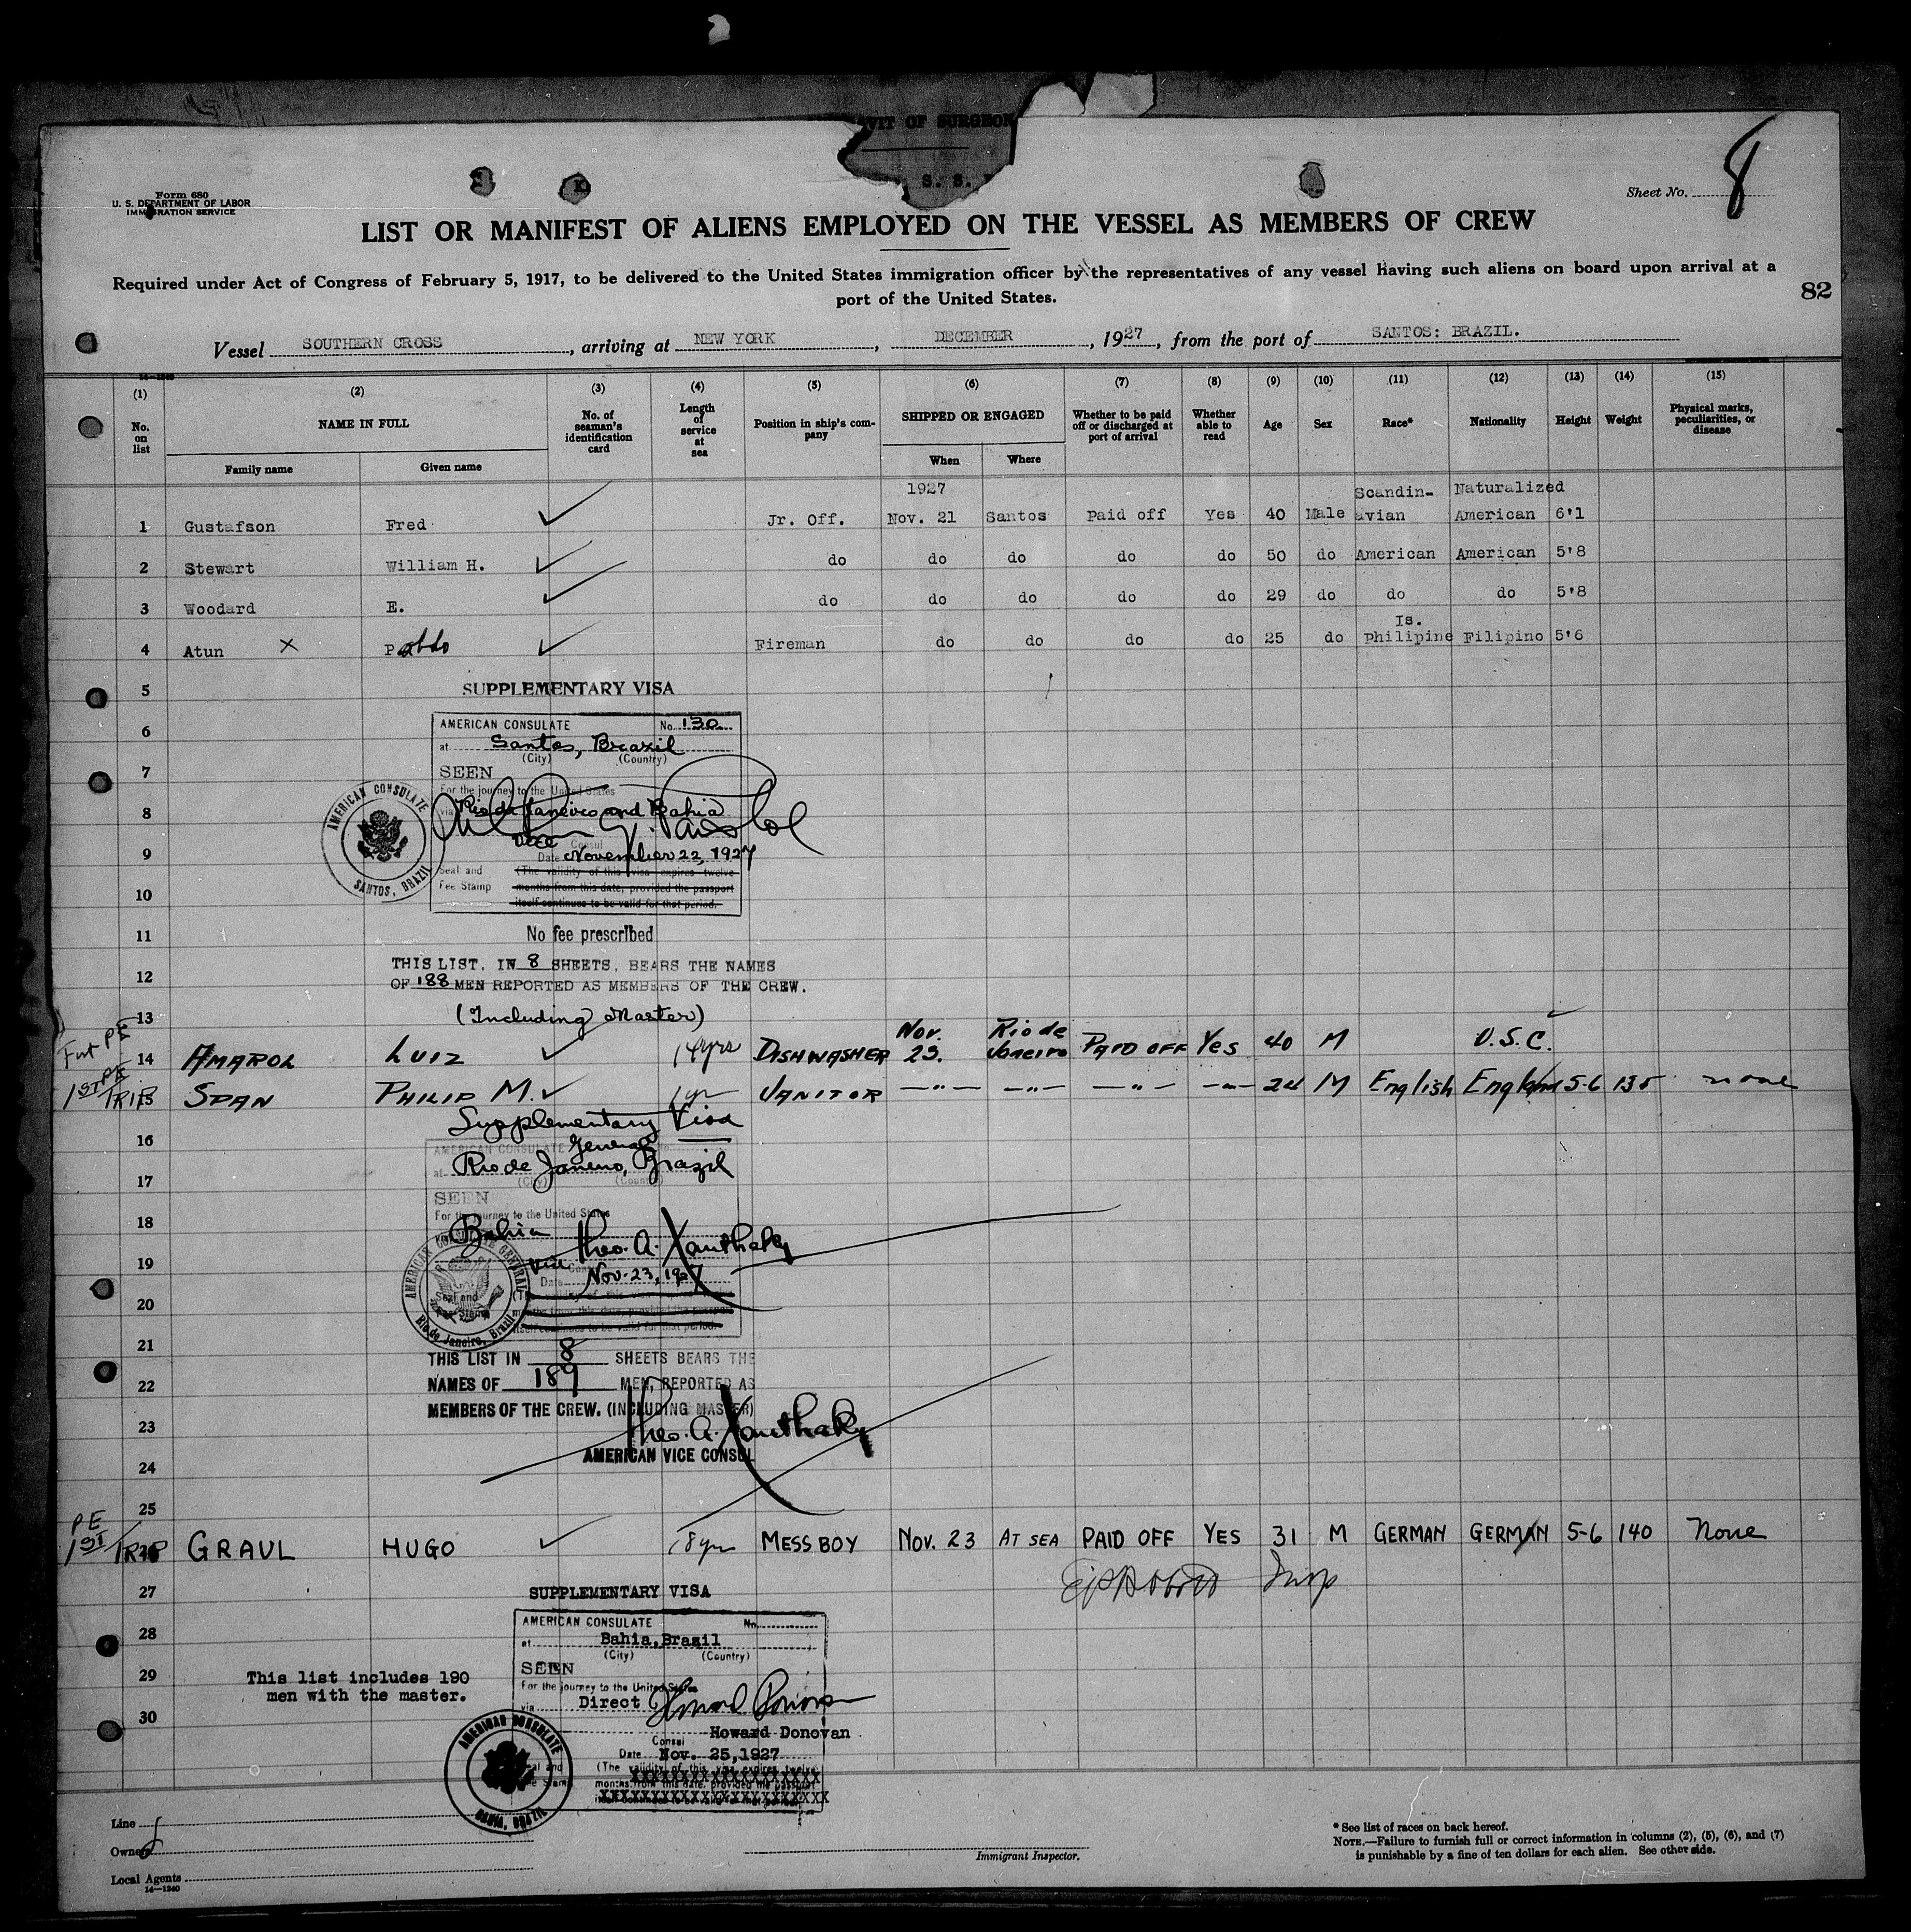 VIT OF SURGEON
S. S.
Form 680
U. S. DEPARTMENT OF LABOR
IMMIGRATION SERVICE
Sheet No. 8
LIST OR MANIFEST OF ALIENS EMPLOYED ON THE VESSEL AS MEMBERS OF CREW
Required under Act of Congress of February 5, 1917, to be delivered to the United States immigration officer by the representatives of any vessel having such aliens on board upon arrival at a
port of the United States.
82
Vessel SOUTHERN CROSS, arriving at NEW YORK, DECEMBER, 1927, from the port of SANTOS: BRAZIL.
(1) (2) (3) (4) (5) (6) (7) (8) (9) (10) (11) (12) (13) (14) (15)
No. on list
NAME IN FULL
Family name Given name
No. of seaman's identification card
Length of service at sea
Position in ship's company
SHIPPED OR ENGAGED
When Where
Whether to be paid off or discharged at port of arrival
Whether able to read
Age
Sex
Race*
Nationality
Height
Weight
Physical marks, peculiarities, or disease
1927 Scandin- Naturalized
1 Gustafson Fred Jr. Off. Nov. 21 Santos Paid off Yes 40 Male avian American 6'1
2 Stewart William H. do do do do do 50 do American American 5'8
3 Woodard E. do do do do do 29 do do do 5'8
Is.
4 Atun X Pablo Fireman do do do do 25 do Philipine Filipino 5'6
5
SUPPLEMENTARY VISA
6
AMERICAN CONSULATE No. 130
at Santos, Brazil
(City) (Country)
7
SEEN
For the journey to the United States
8
via Rio de Janeiro and Bahia
Vice Consul
9
Date November 22, 1927
Seal and Fee Stamp
(The validity of this visa expires twelve
months from this date, provided the passport
itself continues to be valid for that period.
10
AMERICAN CONSULATE
SANTOS, BRAZIL
11
No fee prescribed
12
THIS LIST, IN 8 SHEETS, BEARS THE NAMES
OF 188 MEN REPORTED AS MEMBERS OF THE CREW.
13
(Including Master)
14 AMAROL LUIZ 14yrs DISHWASHER Nov. 23. Rio de Janeiro PAID OFF Yes 40 M U.S.C.
1ST PE TRIP SPAN PHILIP M. 1yr JANITOR —"— —"— —"— —"— 24 M English English 5-6 135 none
Supplementary Visa
16
AMERICAN CONSULATE General No.
at Rio de Janeiro, Brazil
(City) (Country)
17
SEEN
For the journey to the United States
18
Bahia
Theo. A. Xanthaky
19
Vice Consul
Date Nov. 23, 1927
20
Seal and Fee Stamp
(The validity of this
months from this date, provided the passport
itself continues to be valid for that period.
AMERICAN CONSULATE GENERAL
Rio de Janeiro, Brazil
21
THIS LIST IN 8 SHEETS BEARS THE
22
NAMES OF 189 MEN, REPORTED AS
MEMBERS OF THE CREW. (INCLUDING MASTER)
23
Theo. A. Xanthaky
AMERICAN VICE CONSUL
24
25
PE 1ST TRIP GRAUL HUGO 18yrs MESS BOY Nov. 23 AT SEA PAID OFF YES 31 M GERMAN GERMAN 5-6 140 None
27
SUPPLEMENTARY VISA
28
AMERICAN CONSULATE No.
at Bahia, Brazil
(City) (Country)
29
SEEN
For the journey to the United States
via Direct Howard Donovan
This list includes 190
men with the master.
30
Howard Donovan
Consul
Date Nov. 25, 1927
(The validity of this visa expires twelve
months from this date, provided the passport
AMERICAN CONSULATE
BAHIA, BRAZIL
Line
Owners
Local Agents
14—1240
Immigrant Inspector.
* See list of races on back hereof.
NOTE.—Failure to furnish full or correct information in columns (2), (5), (6), and (7)
is punishable by a fine of ten dollars for each alien. See other side.